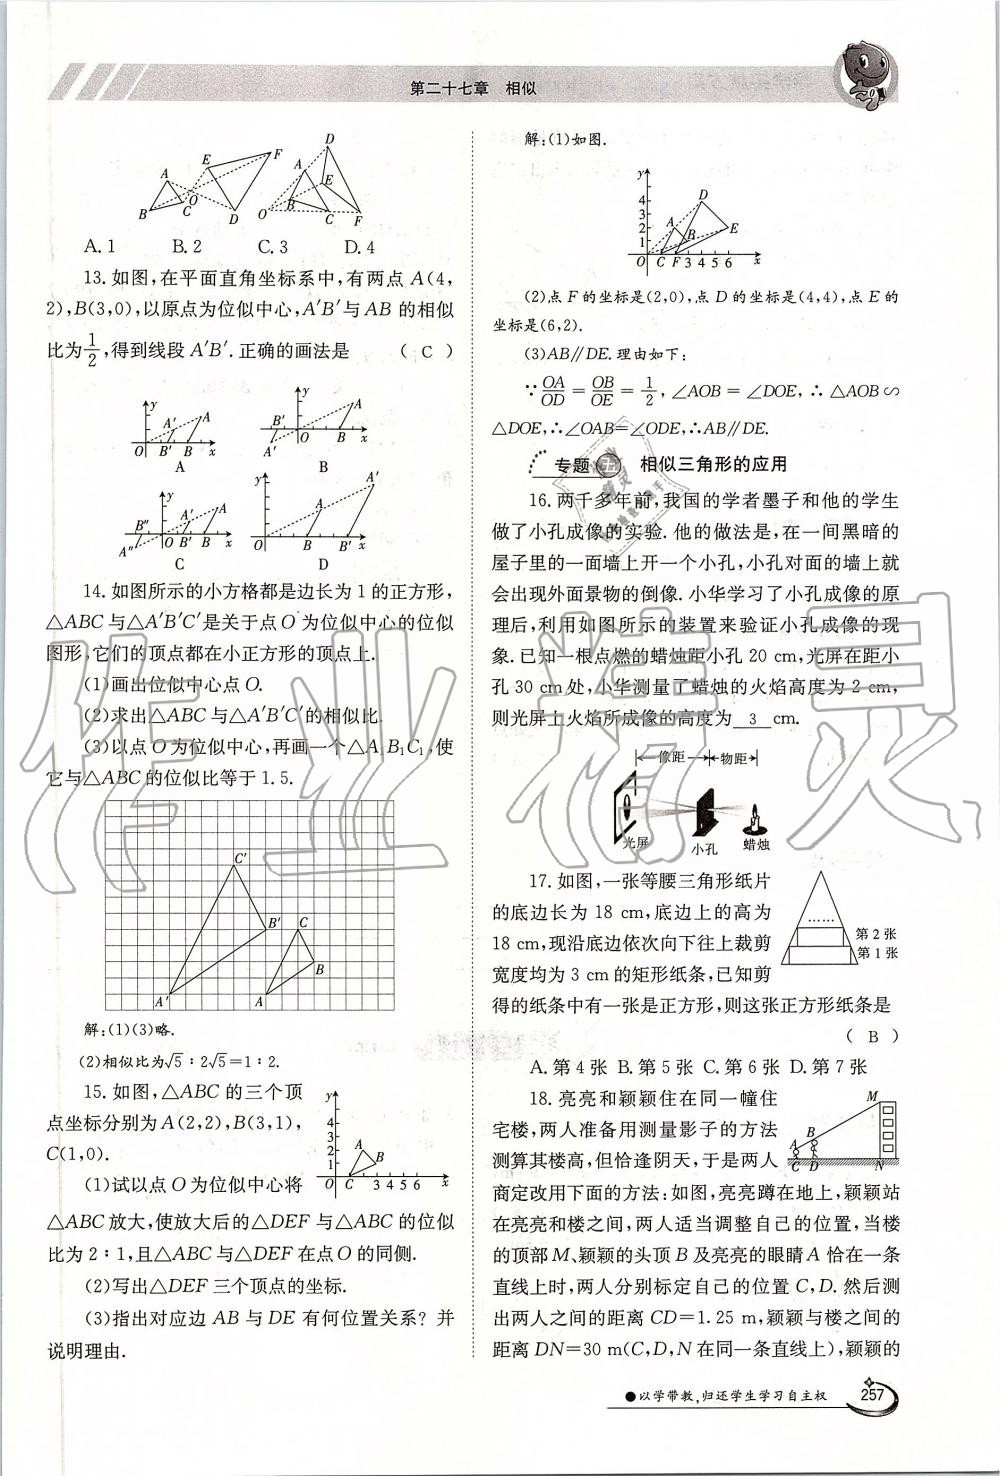 第二十七章 相似
A.1 B.2 C.3 D.4
13.如图,在平面直角坐标系中,有两点 A(4,
2),B(3,0),以原点为位似中心,A′B′与 AB 的相似
比为1/2,得到线段 A′B′.正确的画法是 ( C )
A B
C D
14.如图所示的小方格都是边长为 1 的正方形,
△ABC与△A′B′C′是关于点 O 为位似中心的位似
图形,它们的顶点都在小正方形的顶点上.
(1)画出位似中心点 O.
(2)求出△ABC与△A′B′C′的相似比.
(3)以点 O 为位似中心,再画一个△A₁B₁C₁,使
它与△ABC 的位似比等于 1.5.
解:(1)(3)略.
(2)相似比为√5∶2√5=1∶2.
15.如图,△ABC 的三个顶
点坐标分别为 A(2,2),B(3,1),
C(1,0).
(1)试以点 O 为位似中心将
△ABC 放大,使放大后的△DEF 与△ABC 的位似
比为 2∶1,且△ABC 与△DEF 在点 O 的同侧.
(2)写出△DEF 三个顶点的坐标.
(3)指出对应边 AB 与 DE 有何位置关系?并
说明理由.
解:(1)如图.
(2)点 F 的坐标是(2,0),点 D 的坐标是(4,4),点 E 的
坐标是(6,2).
(3)AB∥DE.理由如下:
∵OA/OD=OB/OE=1/2,∠AOB=∠DOE,∴△AOB∽
△DOE,∴∠OAB=∠ODE,∴AB∥DE.
专题五 相似三角形的应用
16.两千多年前,我国的学者墨子和他的学生
做了小孔成像的实验.他的做法是,在一间黑暗的
屋子里的一面墙上开一个小孔,小孔对面的墙上就
会出现外面景物的倒像.小华学习了小孔成像的原
理后,利用如图所示的装置来验证小孔成像的现
象.已知一根点燃的蜡烛距小孔 20 cm,光屏在距小
孔 30 cm处,小华测量了蜡烛的火焰高度为 2 cm,
则光屏上火焰所成像的高度为 3 cm.
像距 物距
光屏 小孔 蜡烛
17.如图,一张等腰三角形纸片
的底边长为 18 cm,底边上的高为
18 cm,现沿底边依次向下往上裁剪
宽度均为 3 cm 的矩形纸条,已知剪
得的纸条中有一张是正方形,则这张正方形纸条是
( B )
……
第 2 张
第 1 张
A.第 4 张 B.第 5 张 C.第 6 张 D.第 7 张
18.亮亮和颖颖住在同一幢住
宅楼,两人准备用测量影子的方法
测算其楼高,但恰逢阴天,于是两人
商定改用下面的方法:如图,亮亮蹲在地上,颖颖站
在亮亮和楼之间,两人适当调整自己的位置,当楼
的顶部 M、颖颖的头顶 B 及亮亮的眼睛 A 恰在一条
直线上时,两人分别标定自己的位置 C,D.然后测
出两人之间的距离 CD=1.25 m,颖颖与楼之间的
距离 DN=30 m(C,D,N 在同一条直线上),颖颖的
●以学带教,归还学生学习自主权
257
作业精灵